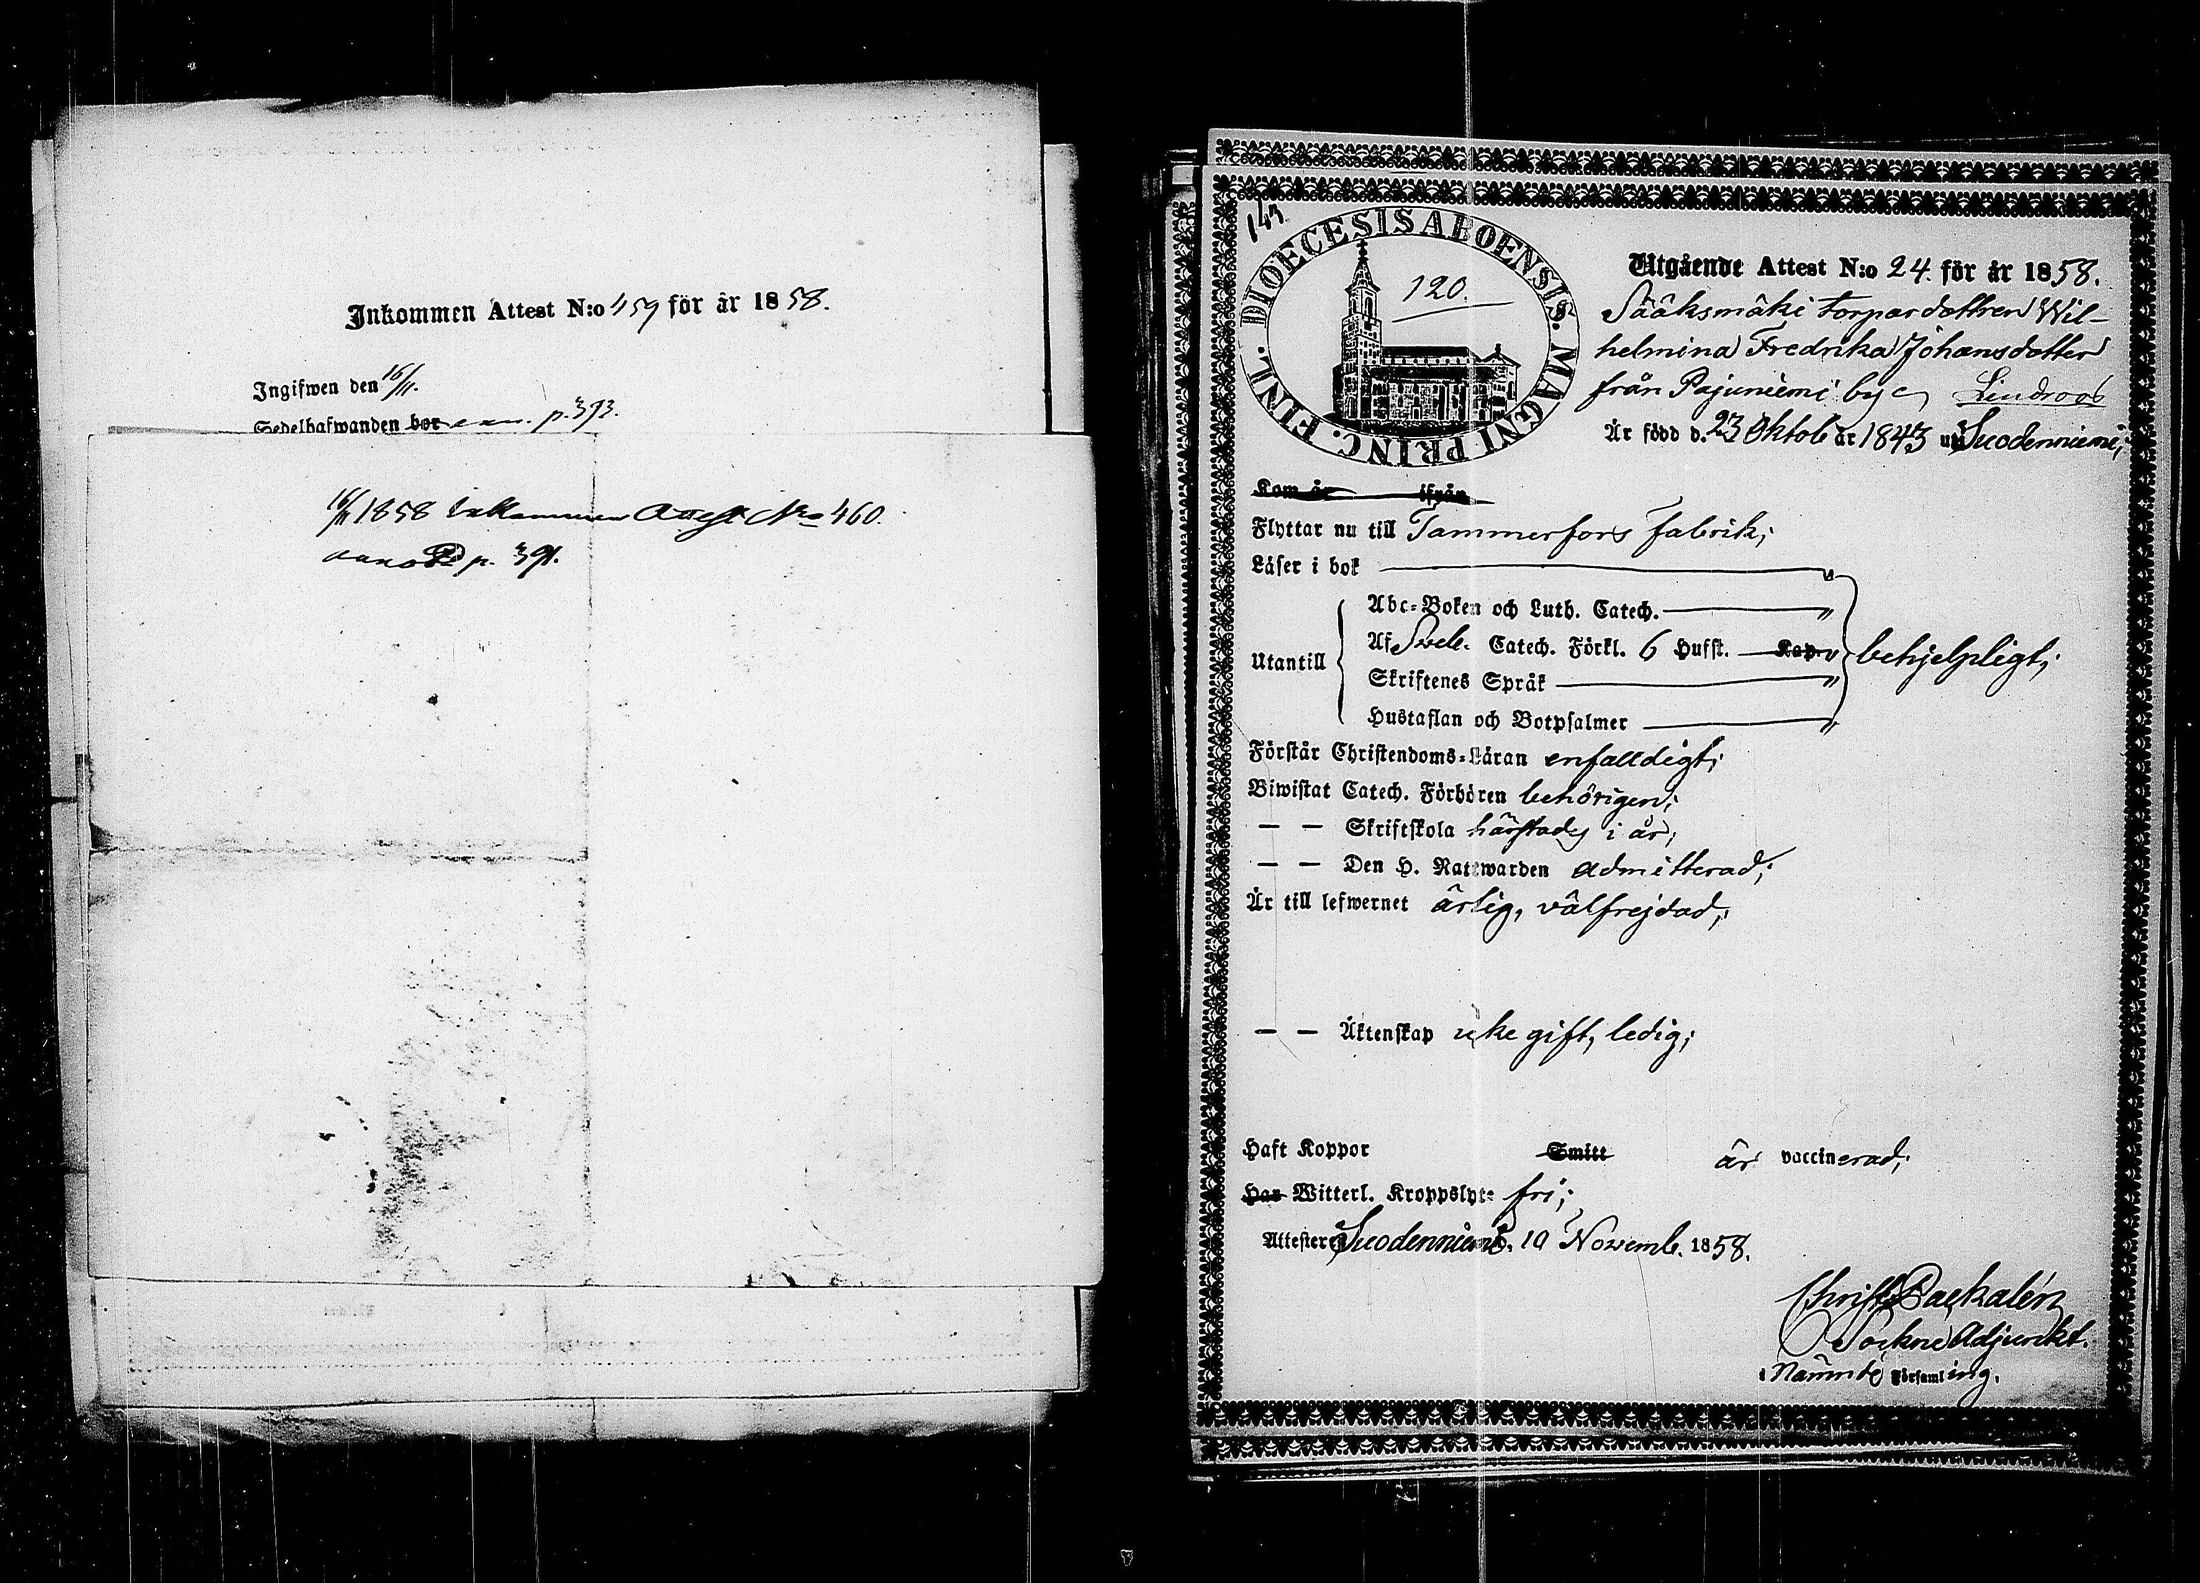 Inkommen Attest N:o 459 för år 1858.
Ingifwen den 16/11.
Sedelhafwanden bor p. 393.
16/11 1858 Inkommen Attest No 460.
p. 391.
DIOECESIS ABOENSIS. MAGNI PRINC. FINL.
120.
Utgående Attest N:o 24. för år 1858.
Sääksmäki torpardottren Wil-
helmina Fredrika Johansdotter
från Pajuniemi by Lindroos
Är född d. 23 Oktob år 1843 uti Suodenniemi;
Kom år ifrån
Flyttar nu till Tammerfors fabrik;
Läser i bok "
Abc-Boken och Luth. Catech. "
Utantill Af Sveb. Catech. Förkl. 6 Hufst. Kap " behjelpligt;
Skriftenes Språk "
Hustaflan och Botpsalmer "
Förstår Christendoms-Läran enfalldigt;
Biwistat Catech. Förhören behörigen;
— — Skriftskola härstädes i år;
— — Den H. Nattwarden admitterad;
Är till lefwernet ärlig, välfrejdad;
— — Äktenskap icke gift, ledig;
Haft Koppor Smitt är vaccinerad;
Har Witterl. Kroppslyte fri;
Attesterar Suodenniemi d. 10 Novemb. 1858.
Christ. Packalén
Sockne Adjunkt.
i Nämnde Församling.